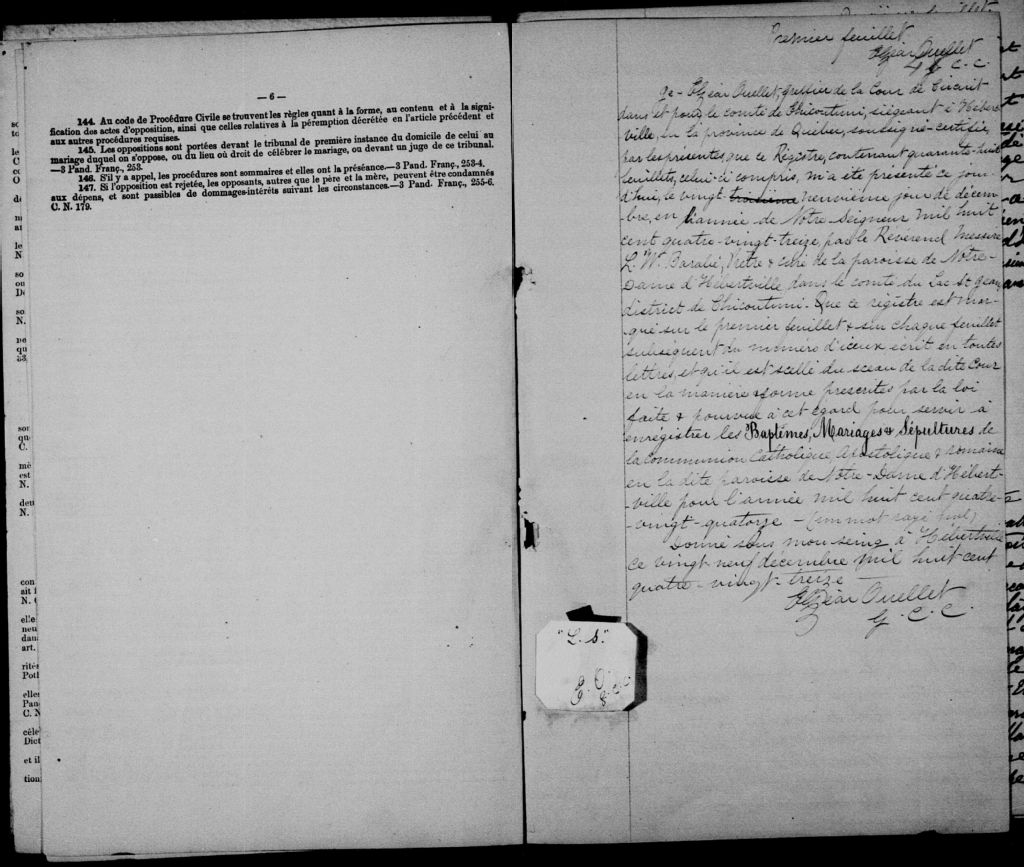 — 6 —
144. Au code de Procédure Civile se trouvent les règles quant à la forme, au contenu et à la signi-
fication des actes d'opposition, ainsi que celles relatives à la péremption décrétée en l'article précédent et
aux autres procédures requises.
145. Les oppositions sont portées devant le tribunal de première instance du domicile de celui au
mariage duquel on s'oppose, ou du lieu où droit de célébrer le mariage, ou devant un juge de ce tribunal.
—3 Pand. Franç., 253.
146. S'il y a appel, les procédures sont sommaires et elles ont la préséance.—3 Pand. Franç., 253-4.
147. Si l'opposition est rejetée, les opposants, autres que le père et la mère, peuvent être condamnés
aux dépens, et sont passibles de dommages-intérêts suivant les circonstances.—3 Pand. Franç., 255-6.
C. N. 179.
Premier feuillet
Elzéar Ouellet
G. C. C.
Je Elzéar Ouellet, greffier de la Cour de Circuit
dans et pour le comté de Chicoutimi, siégeant à Hébert-
ville, en la province de Québec, soussigné certifie,
par les présentes, que ce Registre, contenant quarante-huit
feuillets, celui-ci compris, m'a été présenté ce jour-
d'hui, le vingt-troisième neuvième jour de décem-
bre, en l'année de Notre-Seigneur mil huit
cent quatre-vingt-treize, par le Révérend Messire
L. W. Barabé, Prêtre & curé de la paroisse de Notre-
Dame d'Hébertville, dans le comté du Lac St Jean,
district de Chicoutimi. Que ce registre est mar-
qué sur le premier feuillet & sur chaque feuillet
subséquent du numéro d'iceux écrit en toutes
lettres, et qu'il est scellé du sceau de la dite Cour
en la manière & forme prescrites par la loi
faite & pourvue à cet égard pour servir à
enrégistrer les Baptêmes, Mariages & Sépultures de
la communion Catholique Apostolique & romaine
en la dite paroisse de Notre-Dame d'Hébert-
ville pour l'année mil huit cent quatre-
-vingt-quatorze - (un mot rayé nul)
Donné sous mon seing à Hébertville
ce vingt-neuf décembre mil huit cent
quatre-vingt-treize
Elzéar Ouellet
G. C. C.
"L. S."
E. O.
G. C. C.